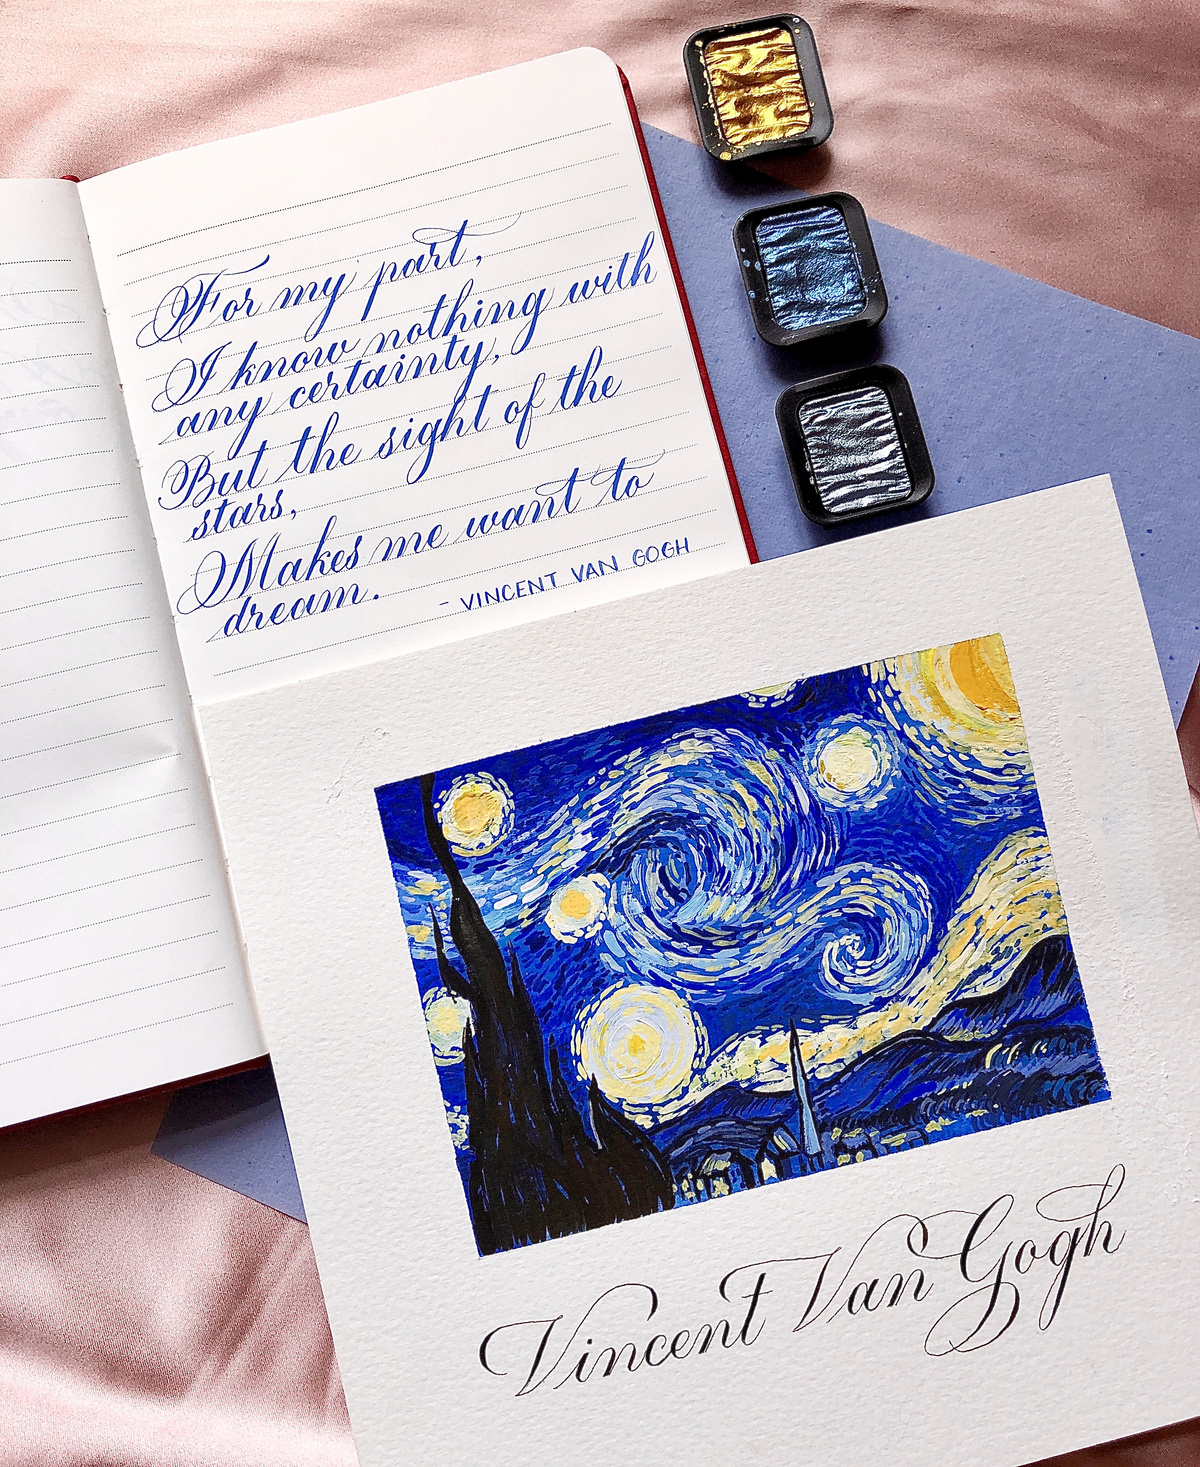 For my part,
I know nothing with
any certainty,
But the sight of the
stars,
Makes me want to
dream.
- VINCENT VAN GOGH
Vincent Van Gogh